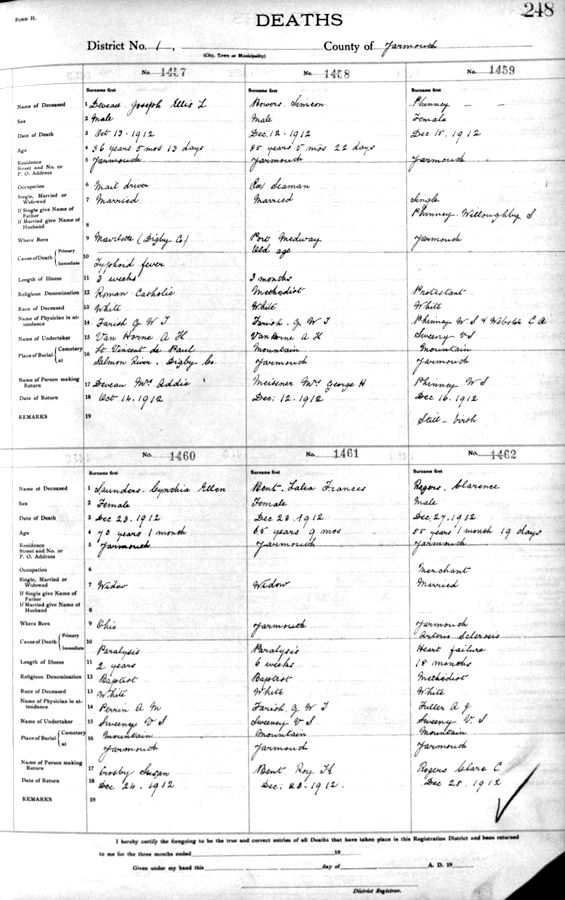 FORM H.
DEATHS
248
District No. 1,
(City, Town or Municipality)
County of Yarmouth
No. 1457 No. 1458 No. 1459
Surname first Surname first Surname first
Name of Deceased 1 Deveau Joseph Ellis L Bowers Simeon Phinney - -
Sex 2 Male Male Female
Date of Death 3 Oct 13. 1912 Dec. 12. 1912 Dec 15. 1912
Age 4 36 years 5 mos 13 days 85 years 5 mos 22 days
Residence Street and No. or P. O. Address 5 Yarmouth Yarmouth Yarmouth
Occupation 6 Mail driver Seaman
Single, Married or Widowed 7 Married Married Single
If Single give Name of Father If Married give Name of Husband 8 Phinney Willoughby S
Where Born 9 Mavillette (Digby Co) Port Medway Yarmouth
Cause of Death Primary Immediate 10 Typhoid fever Old age
Length of Illness 11 3 weeks 3 months
Religious Denomination 12 Roman Catholic Methodist Protestant
Race of Deceased 13 White White White
Name of Physician in attendance 14 Farish G W T Farish. G W T Phinney W S & Webster C A
Name of Undertaker 15 Van Horne A H Van Horne A H Sweeny V S
Place of Burial Cemetery at 16 St. Vincent de Paul Mountain Mountain
Salmon River. Digby Co. Yarmouth Yarmouth
Name of Person making Return 17 Deveau Mrs Addie Meisner Mrs George H Phinney W S
Date of Return 18 Oct 14. 1912 Dec. 12. 1912 Dec 16. 1912
REMARKS 19 Still - birth
No. 1460 No. 1461 No. 1462
Surname first Surname first Surname first
Name of Deceased 1 Saunders. Cynthia Ellen Bent. Frances Rogers. Clarence
Sex 2 Female Female Male
Date of Death 3 Dec 23. 1912 Dec 23. 1912 Dec. 27. 1912
Age 4 70 years 1 month 65 years 9 mos 55 years 1 month 19 days
Residence Street and No. or P. O. Address 5 Yarmouth Yarmouth Yarmouth
Occupation 6 Merchant
Single, Married or Widowed 7 Widow Widow Married
If Single give Name of Father If Married give Name of Husband 8
Where Born 9 Ohio Yarmouth Yarmouth
Cause of Death Primary Immediate 10 Arterio Sclerosis
Paralysis Paralysis Heart failure
Length of Illness 11 2 years 6 weeks 18 months
Religious Denomination 12 Baptist Baptist Methodist
Race of Deceased 13 White White White
Name of Physician in attendance 14 Perrin A M Farish. G W T Fuller A J
Name of Undertaker 15 Sweeny V S Sweeny V S Sweeny V. S
Place of Burial Cemetery at 16 Mountain Mountain Mountain
Yarmouth Yarmouth Yarmouth
Name of Person making Return 17 Crosby Susan Bent Roy H Rogers Clara C
Date of Return 18 Dec 24. 1912 Dec. 28. 1912. Dec 28. 1912
REMARKS 19
I hereby certify the foregoing to be the true and correct entries of all Deaths that have taken place in this Registration District and been returned
to me for the three months ended 19
Given under my hand this day of A. D. 19
District Registrar.